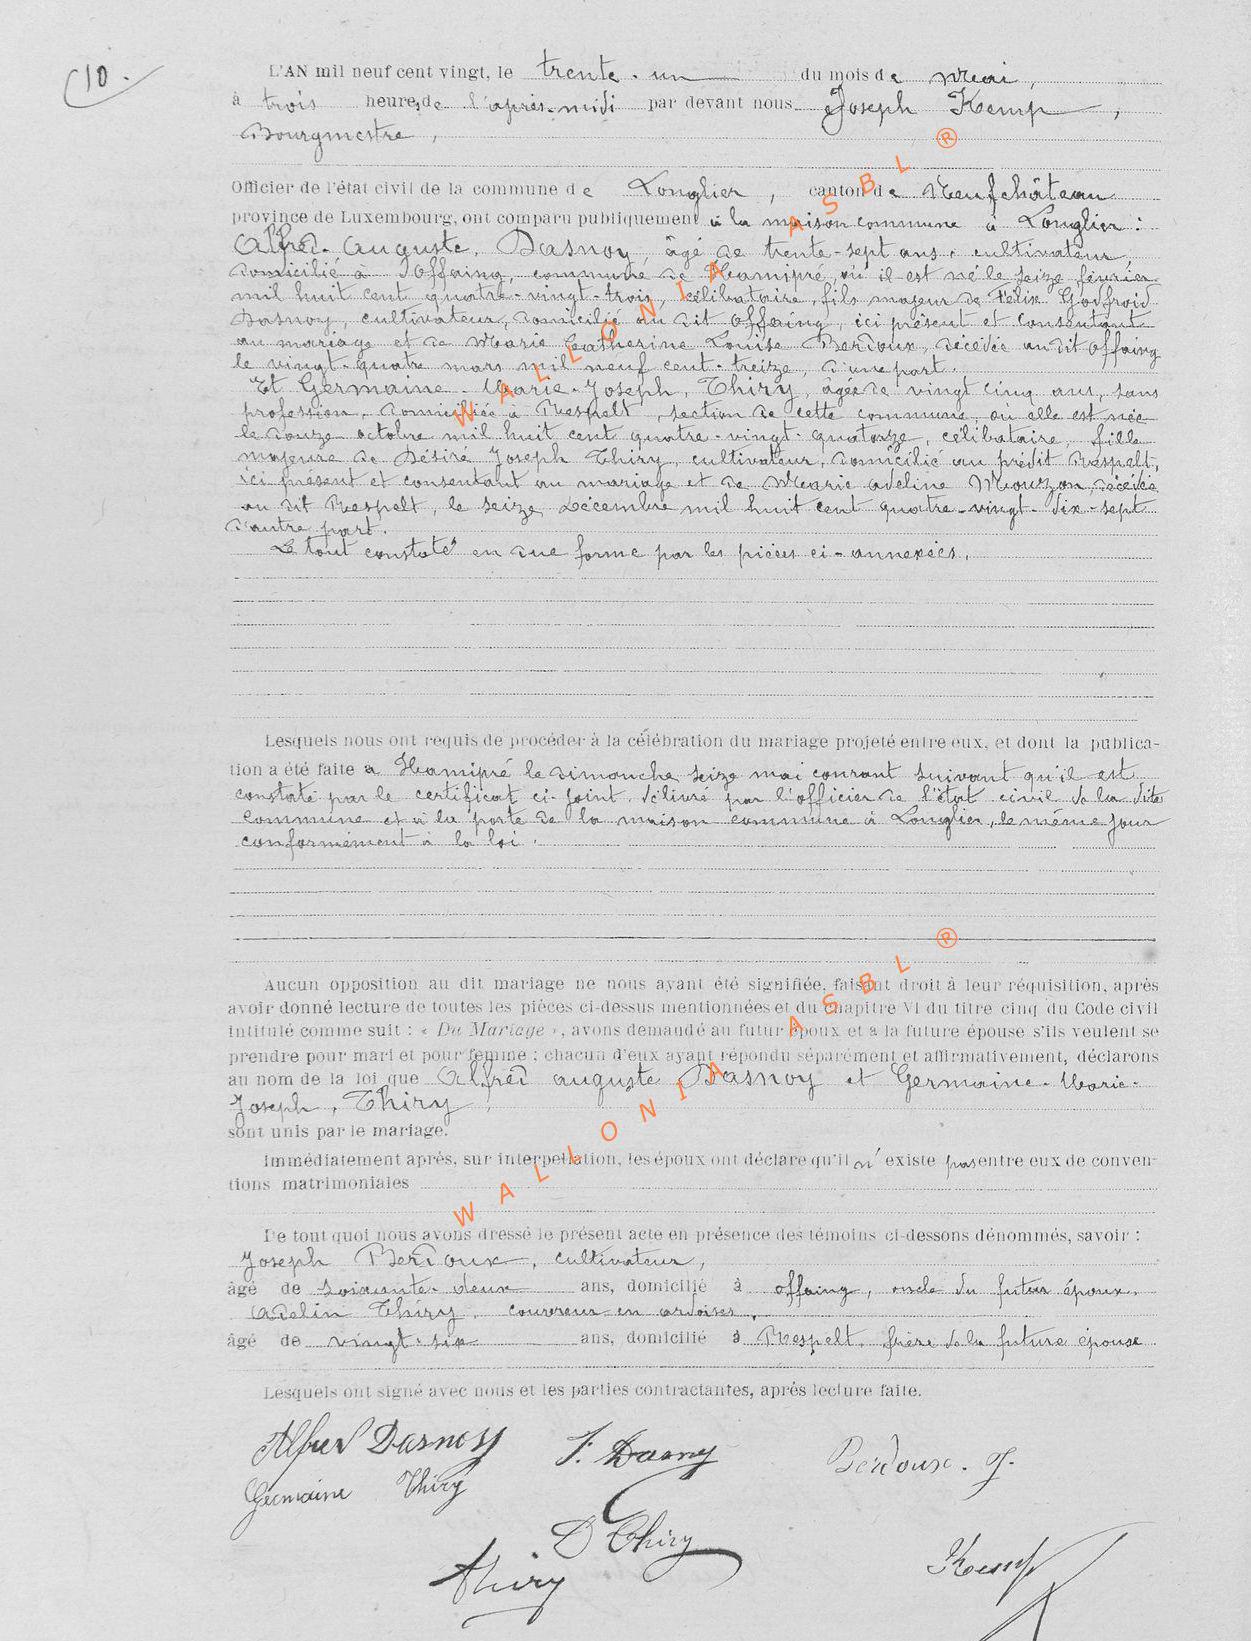 10.
L'AN mil neuf cent vingt, le trente-un du mois de Mai,
à trois heures de l'après-midi par devant nous Joseph Kemp,
Bourgmestre,
Officier de l'état civil de la commune de Longlier, canton de Neufchâteau
province de Luxembourg, ont comparu publiquement à la maison commune à Longlier :
Alfred-Auguste, Dasnoy, âgé de trente-sept ans, cultivateur,
domicilié à Offaing, commune de Hamipré, où il est né le seize février
mil huit cent quatre-vingt-trois, célibataire, fils majeur de Félix Godfroid
Dasnoy, cultivateur, domicilié au dit Offaing, ici présent et consentant
au mariage et de Marie Catherine Louise Berdoux, décédée au dit Offaing
le vingt-quatre mars mil neuf cent-treize, d'une part.
Et Germaine-Marie-Joseph, Thiry, âgée de vingt cinq ans, sans
profession, domiciliée à Respelt, section de cette commune, où elle est née
le douze octobre mil huit cent quatre-vingt-quatorze, célibataire, fille
majeure de Désiré Joseph Thiry, cultivateur, domicilié au prédit Respelt,
ici présent et consentant au mariage et de Marie Adeline Mouzon, décédée
au dit Respelt, le seize Décembre mil huit cent quatre-vingt-dix-sept
d'autre part.
Le tout constaté en due forme par les pièces ci-annexées.
Lesquels nous ont requis de procéder à la célébration du mariage projeté entre eux, et dont la publica-
tion a été faite à Hamipré le dimanche seize mai courant suivant qu'il est
constaté par le certificat ci-joint, délivré par l'officier de l'état civil de la dite
commune et à la porte de la maison commune à Longlier, le même jour
conformément à la loi.
Aucun opposition au dit mariage ne nous ayant été signifiée, faisant droit à leur réquisition, après
avoir donné lecture de toutes les pièces ci-dessus mentionnées et du chapitre VI du titre cinq du Code civil
intitulé comme suit : « Du Mariage », avons demandé au futur époux et à la future épouse s'ils veulent se
prendre pour mari et pour femme ; chacun d'eux ayant répondu séparément et affirmativement, déclarons
au nom de la loi que Alfred auguste Dasnoy et Germaine-Marie-
Joseph, Thiry
sont unis par le mariage.
Immédiatement après, sur interpellation, les époux ont déclaré qu'il n'existe pas entre eux de conven-
tions matrimoniales
De tout quoi nous avons dressé le présent acte en présence des témoins ci-dessons dénommés, savoir :
Joseph Berdoux, cultivateur,
âgé de soixante-deux ans, domicilié à offaing, oncle du futur époux.
Adelin Thiry, couvreur en ardoises,
âgé de vingt-six ans, domicilié à Respelt, frère de la future épouse
Lesquels ont signé avec nous et les parties contractantes, après lecture faite.
Alfred Dasnoy F. Dasnoy Berdoux. J.
Germaine Thiry
D Thiry
A Thiry Kemp
WALLONIA ASBL ®
WALLONIA ASBL ®